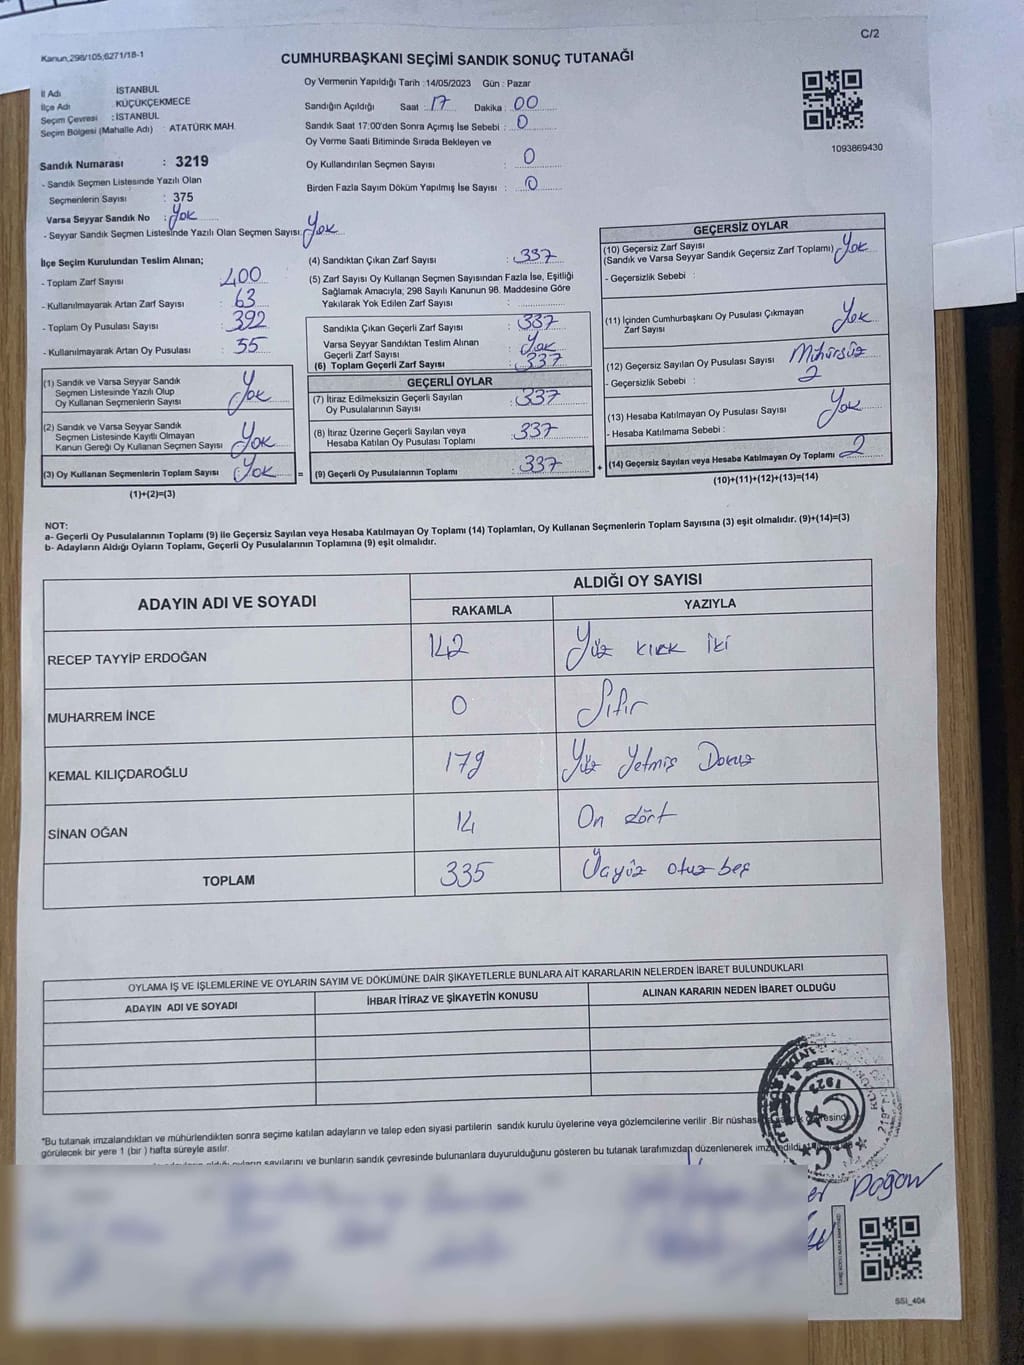 C/2
Kanun,298/105;6271/18-1
CUMHURBAŞKANI SEÇİMİ SANDIK SONUÇ TUTANAĞI
İl Adı : İSTANBUL
İlçe Adı : KÜÇÜKÇEKMECE
Seçim Çevresi : İSTANBUL
Seçim Bölgesi (Mahalle Adı) : ATATÜRK MAH.
Sandık Numarası : 3219
- Sandık Seçmen Listesinde Yazılı Olan
Seçmenlerin Sayısı : 375
Varsa Seyyar Sandık No : Yok
- Seyyar Sandık Seçmen Listesinde Yazılı Olan Seçmen Sayısı: Yok
Oy Vermenin Yapıldığı Tarih :14/05/2023 Gün : Pazar
Sandığın Açıldığı Saat : 17 Dakika : 00
Sandık Saat 17:00'den Sonra Açımış İse Sebebi : 0
Oy Verme Saati Bitiminde Sırada Bekleyen ve
Oy Kullandırılan Seçmen Sayısı : 0
Birden Fazla Sayım Döküm Yapılmış İse Sayısı : 0
1093869430
İlçe Seçim Kurulundan Teslim Alınan;
- Toplam Zarf Sayısı : 400
- Kullanılmayarak Artan Zarf Sayısı : 63
- Toplam Oy Pusulası Sayısı : 392
- Kullanılmayarak Artan Oy Pusulası : 55
(1) Sandık ve Varsa Seyyar Sandık
Seçmen Listesinde Yazılı Olup
Oy Kullanan Seçmenlerin Sayısı : Yok
(2) Sandık ve Varsa Seyyar Sandık
Seçmen Listesinde Kayıtlı Olmayan
Kanun Gereği Oy Kullanan Seçmen Sayısı : Yok
(3) Oy Kullanan Seçmenlerin Toplam Sayısı : Yok
(1)+(2)=(3)
(4) Sandıktan Çıkan Zarf Sayısı : 337
(5) Zarf Sayısı Oy Kullanan Seçmen Sayısından Fazla İse, Eşitliği
Sağlamak Amacıyla, 298 Sayılı Kanunun 98. Maddesine Göre
Yakılarak Yok Edilen Zarf Sayısı :
Sandıkla Çıkan Geçerli Zarf Sayısı : 337
Varsa Seyyar Sandıktan Teslim Alınan
Geçerli Zarf Sayısı : Yok
(6) Toplam Geçerli Zarf Sayısı : 337
GEÇERLİ OYLAR
(7) İtiraz Edilmeksizin Geçerli Sayılan
Oy Pusulalarının Sayısı : 337
(8) İtiraz Üzerine Geçerli Sayılan veya
Hesaba Katılan Oy Pusulası Toplamı : 337
= (9) Geçerli Oy Pusulalarının Toplamı : 337
GEÇERSİZ OYLAR
(10) Geçersiz Zarf Sayısı
(Sandık ve Varsa Seyyar Sandık Geçersiz Zarf Toplamı) : Yok
- Geçersizlik Sebebi :
(11) İçinden Cumhurbaşkanı Oy Pusulası Çıkmayan
Zarf Sayısı : Yok
(12) Geçersiz Sayılan Oy Pusulası Sayısı : Mühürsüz
- Geçersizlik Sebebi : 2
(13) Hesaba Katılmayan Oy Pusulası Sayısı : Yok
- Hesaba Katılmama Sebebi :
+ (14) Geçersiz Sayılan veya Hesaba Katılmayan Oy Toplamı : 2
(10)+(11)+(12)+(13)=(14)
NOT:
a- Geçerli Oy Pusulalarının Toplamı (9) ile Geçersiz Sayılan veya Hesaba Katılmayan Oy Toplamı (14) Toplamları, Oy Kullanan Seçmenlerin Toplam Sayısına (3) eşit olmalıdır. (9)+(14)=(3)
b- Adayların Aldığı Oyların Toplamı, Geçerli Oy Pusulalarının Toplamına (9) eşit olmalıdır.
ADAYIN ADI VE SOYADI
ALDIĞI OY SAYISI
RAKAMLA YAZIYLA
RECEP TAYYİP ERDOĞAN 142 Yüz kırk iki
MUHARREM İNCE 0 Sıfır
KEMAL KILIÇDAROĞLU 179 Yüz Yetmiş Dokuz
SİNAN OĞAN 14 On dört
TOPLAM 335 Üçyüz otuz beş
OYLAMA İŞ VE İŞLEMLERİNE VE OYLARIN SAYIM VE DÖKÜMÜNE DAİR ŞİKAYETLERLE BUNLARA AİT KARARLARIN NELERDEN İBARET BULUNDUKLARI
ADAYIN ADI VE SOYADI İHBAR İTİRAZ VE ŞİKAYETİN KONUSU ALINAN KARARIN NEDEN İBARET OLDUĞU
*Bu tutanak imzalandıktan ve mühürlendikten sonra seçime katılan adayların ve talep eden siyasi partilerin sandık kurulu üyelerine veya gözlemcilerine verilir .Bir nüshası
görülecek bir yere 1 (bir ) hafta süreyle asılır.
oyların sayılarını ve bunların sandık çevresinde bulunanlara duyurulduğunu gösteren bu tutanak tarafımızdan düzenlenerek
1923
T.C.
Doğan
SSİ_404